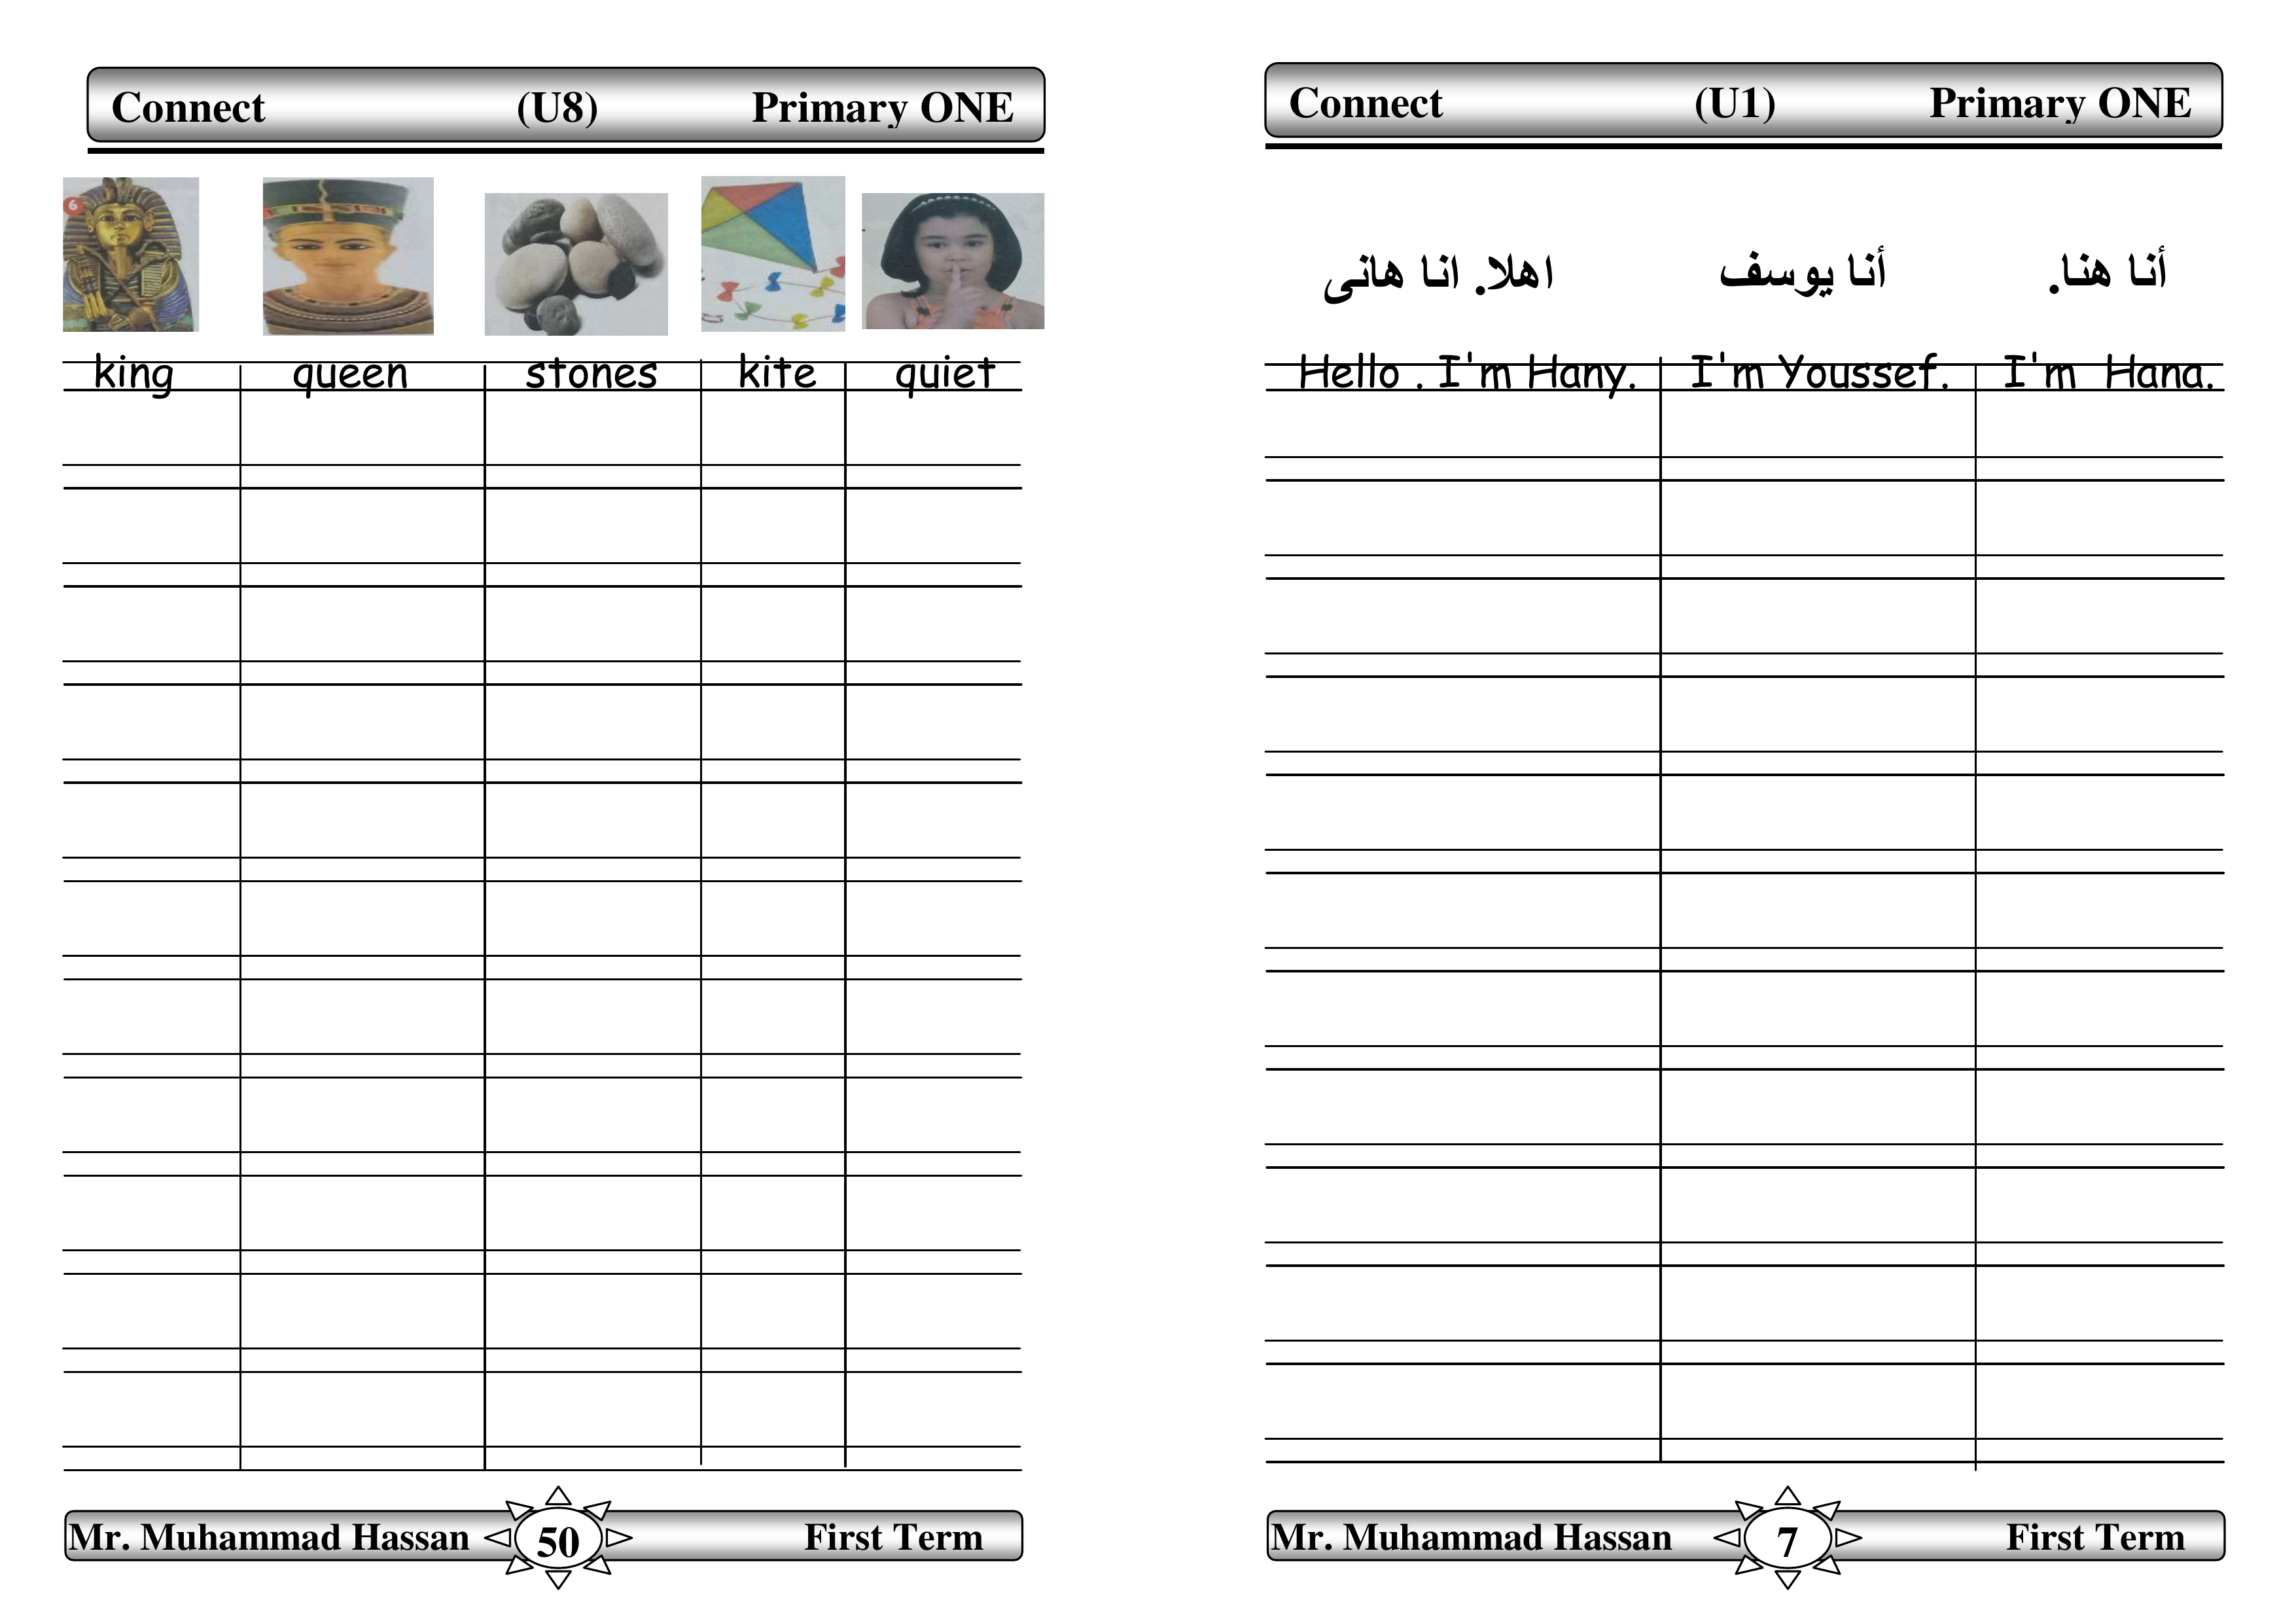 Connect (U8) Primary ONE
6
king queen stones kite quiet
Mr. Muhammad Hassan 50 First Term
Connect (U1) Primary ONE
اهلا. انا هانى أنا يوسف أنا هنا.
Hello . I'm Hany. I'm Youssef. I'm Hana.
Mr. Muhammad Hassan 7 First Term